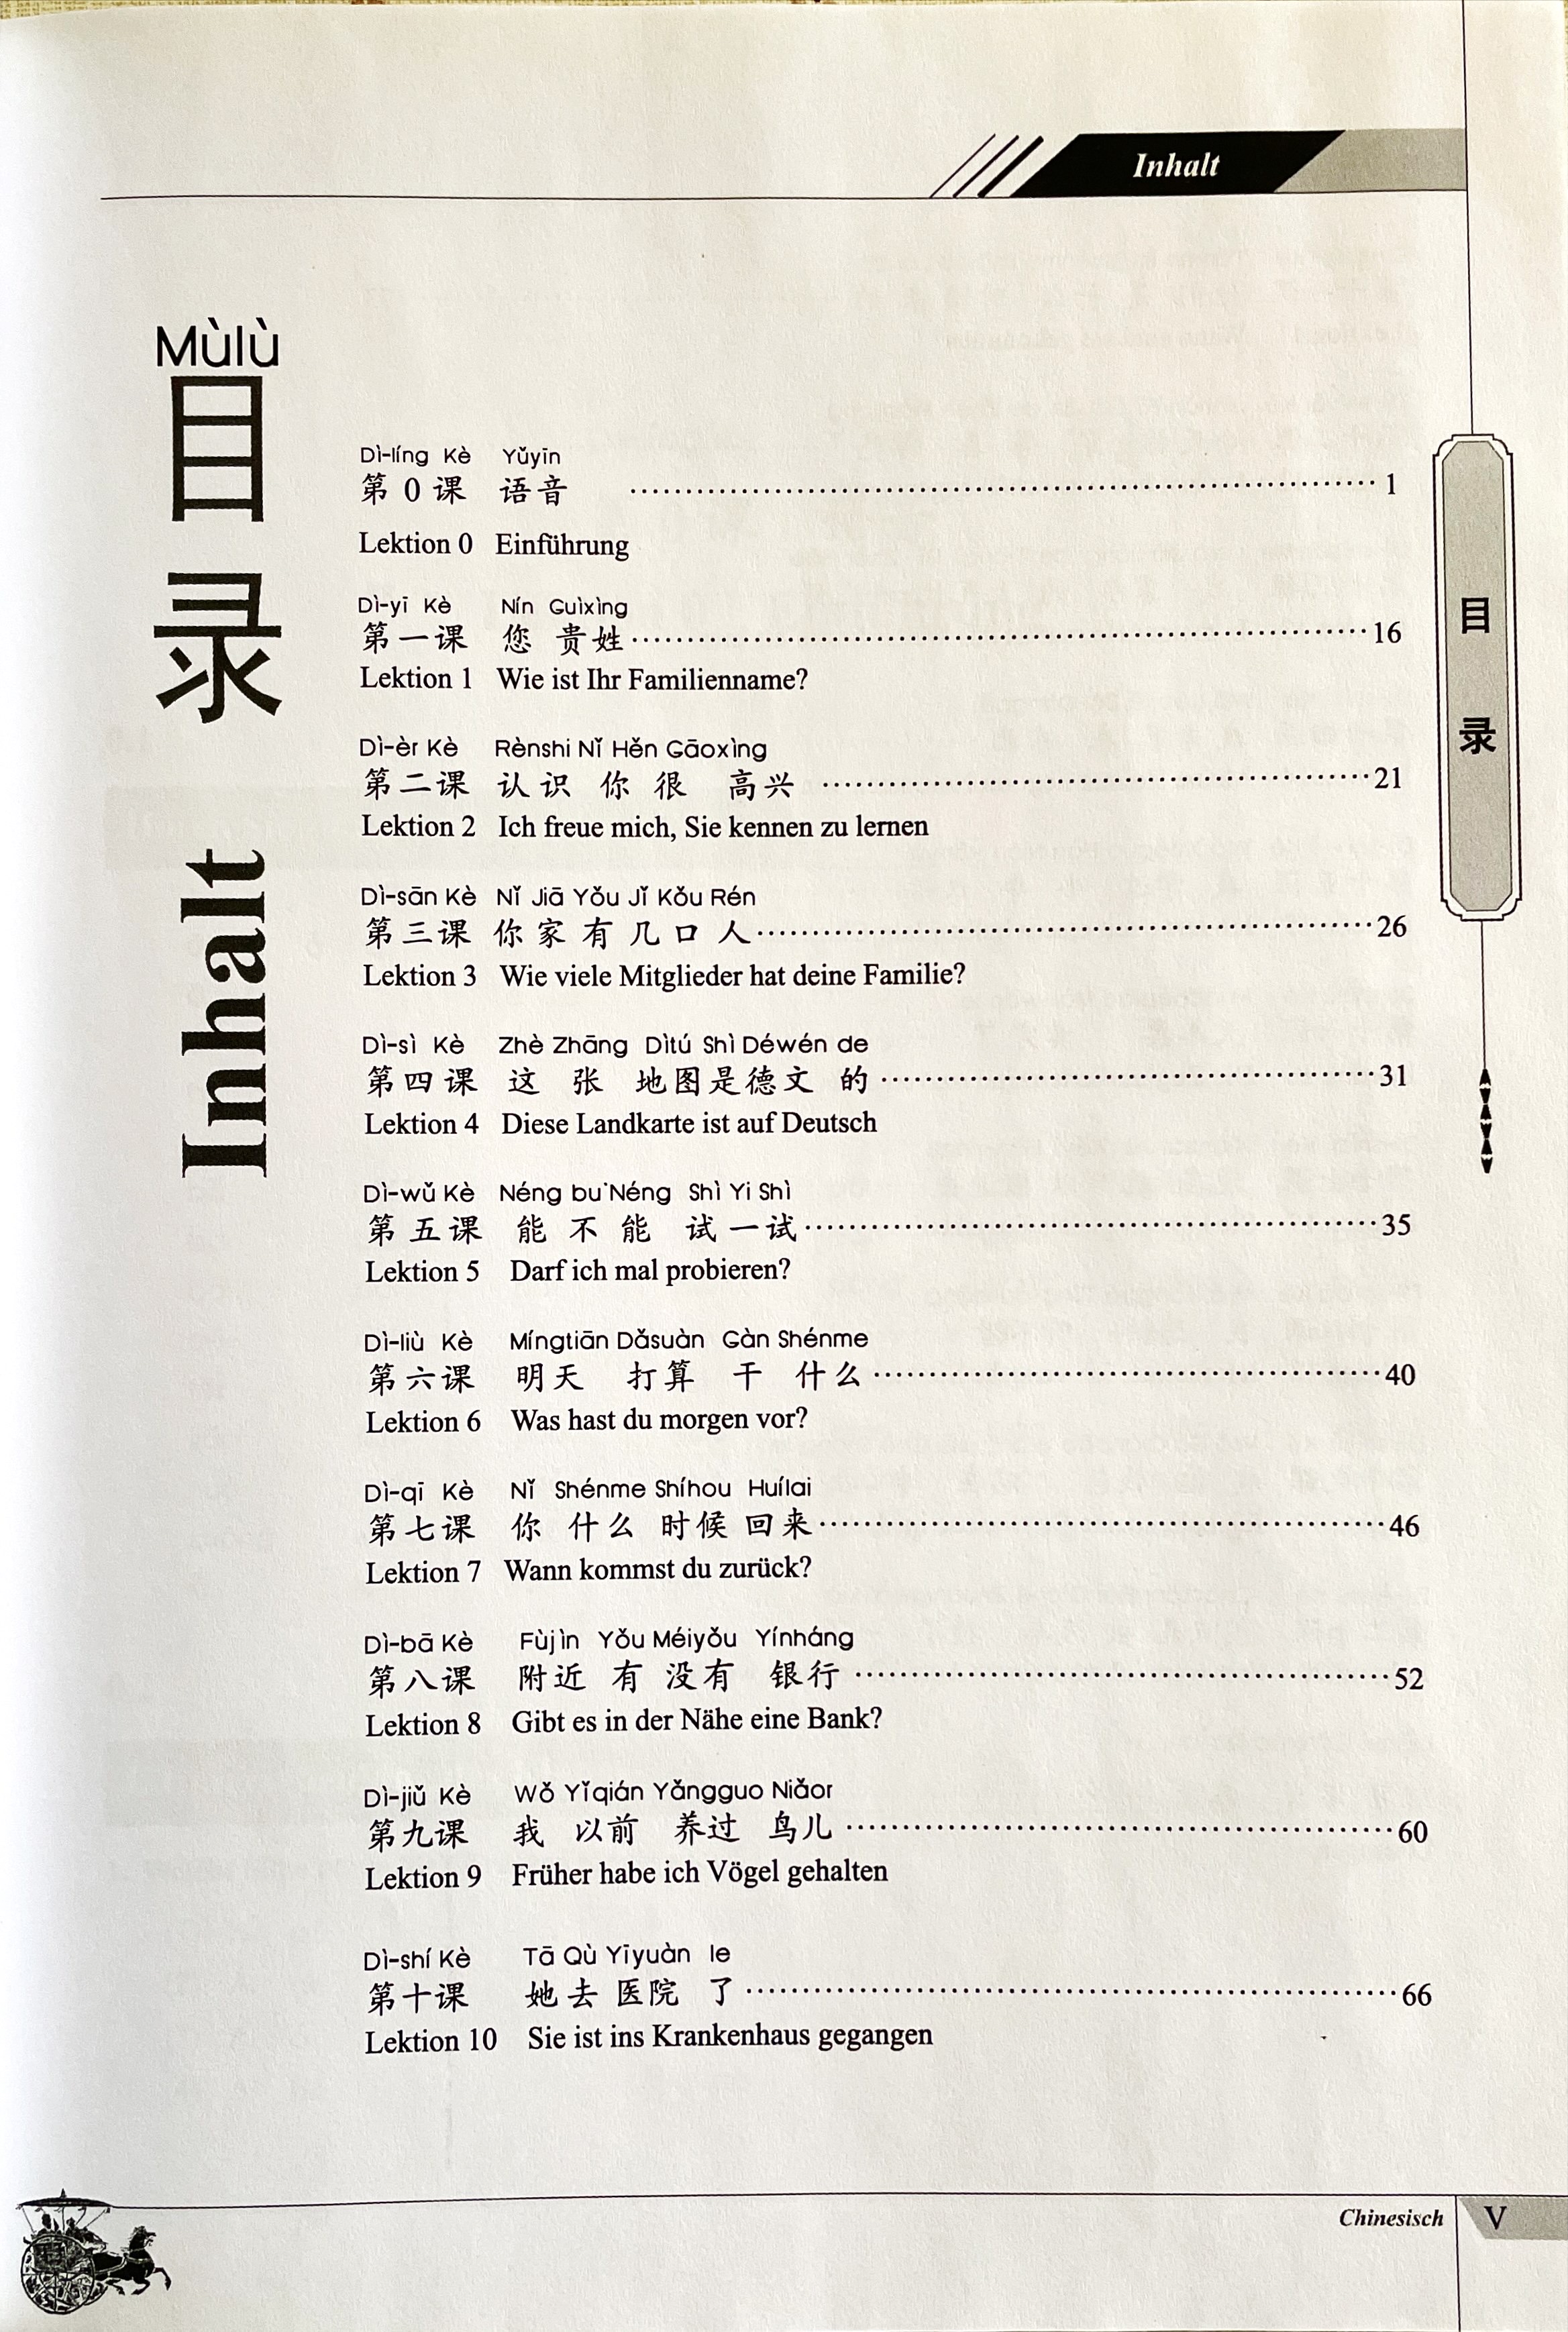 Inhalt
Mùlù
目录
Inhalt
Dì-líng Kè Yǔyīn
第 0 课 语音 1
Lektion 0 Einführung
Dì-yī Kè Nín Guìxìng
第一课 您 贵姓 16
Lektion 1 Wie ist Ihr Familienname?
Dì-èr Kè Rènshi Nǐ Hěn Gāoxìng
第二课 认识 你 很 高兴 21
Lektion 2 Ich freue mich, Sie kennen zu lernen
Dì-sān Kè Nǐ Jiā Yǒu Jǐ Kǒu Rén
第三课 你 家 有 几 口 人 26
Lektion 3 Wie viele Mitglieder hat deine Familie?
Dì-sì Kè Zhè Zhāng Dìtú Shì Déwén de
第四课 这 张 地图是德文 的 31
Lektion 4 Diese Landkarte ist auf Deutsch
Dì-wǔ Kè Néng bu Néng Shì Yi Shì
第五课 能 不 能 试一试 35
Lektion 5 Darf ich mal probieren?
Dì-liù Kè Míngtiān Dǎsuàn Gàn Shénme
第六课 明天 打算 干 什么 40
Lektion 6 Was hast du morgen vor?
Dì-qī Kè Nǐ Shénme Shíhou Huílai
第七课 你 什么 时候 回来 46
Lektion 7 Wann kommst du zurück?
Dì-bā Kè Fùjìn Yǒu Méiyǒu Yínháng
第八课 附近 有 没有 银行 52
Lektion 8 Gibt es in der Nähe eine Bank?
Dì-jiǔ Kè Wǒ Yǐqián Yǎngguo Niǎor
第九课 我 以前 养过 鸟儿 60
Lektion 9 Früher habe ich Vögel gehalten
Dì-shí Kè Tā Qù Yīyuàn le
第十课 她去 医院 了 66
Lektion 10 Sie ist ins Krankenhaus gegangen
目录
Chinesisch V